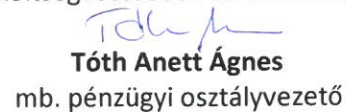 Tóth Anett Ágnes
mb. pénzügyi osztályvezető